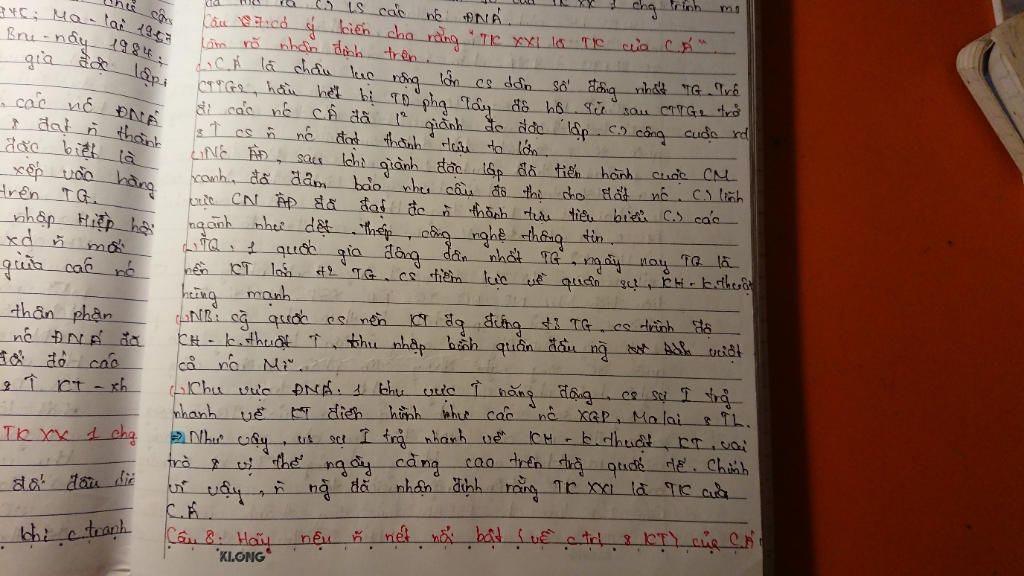 ra C) LS các nc ĐNÁ.
Câu 7: có ý kiến cho rằng "TK XXI là TK của C.Á".
làm rõ nhận định trên.
C.Á là châu lục rộng lớn cs dân số đông nhất TG. Trc
CTTG2, hầu hết bị TD phg Tây đô hộ. Từ sau CTTG2 trở
đi các nc C.Á đã giành đc độc lập. C) công cuộc xd
& ↑ cs ñ nc đạt thành tựu to lớn.
NC ÂĐ, sau khi giành độc lập đã tiến hành cuộc CM
xanh, đã đảm bảo nhu cầu đô thị cho đất nc. C) lĩnh
vực CN ÂĐ đã đạt đc ñ thành tựu tiêu biểu C) các
ngành như dệt, thép, công nghệ thông tin.
TQ. 1 quốc gia đông dân nhất TG. ngày nay TQ là
nền KT lớn t2 TG. cs tiềm lực về quân sự, KH-k.thuật
hùng mạnh
NB: cg quốc cs nền KT đg đứng t3 TG, cs trình độ
KH-k.thuật ↑, thu nhập bình quân đầu ng vượt
cả nc Mĩ.
Khu vực ĐNÁ. 1 khu vực ↑ năng động, cs sự ↑ trg
nhanh về KT điển hình như các nc XGP, Malai & TL.
⇒ Như vậy, vs sự ↑ trg nhanh về KH-k.thuật, KT, vai
trò & vị thế ngày càng cao trên trg quốc tế. Chính
vì vậy, ñ ng đã nhận định rằng TK XXI là TK của
C.Á.
Câu 8: Hãy nêu ñ nét nổi bật (về c.trị & KT) của C.Á
KLONG
Ma-lai 1957
Bru-nây 1984;
gia độc lập.
các nc ĐNÁ
& đạt ñ thành
đặc biệt là
xếp vào hàng
trên TG.
nhập Hiệp hội
xd ñ mối
giữa các nc
thân phận
nc ĐNÁ đã
đổi đó các
& ↑ KT-xh
TK XX 1 chg
đối đầu
khi c.tranh